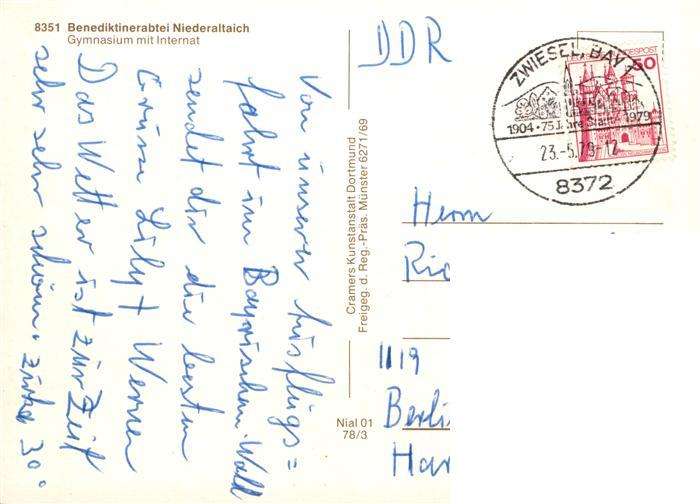 8351 Benediktinerabtei Niederaltaich
Gymnasium mit Internat
Von unserer Ausflugs=
fahrt im Bayrischen Wald
sendet dir die besten
Grüsse Lily + Werner
Das Wetter ist zur Zeit
sehr sehr schön. zirka 30°
Cramers Kunstanstalt Dortmund
Freigeg. d. Reg.-Präs. Münster 6271/69
Nial 01
78/3
DDR
ZWIESEL, BAY
1904 · 75 Jahre Stadt · 1979
23.-5.79-12
8372
BUNDESPOST
50
Herrn
Ric
1119
Berli
Har